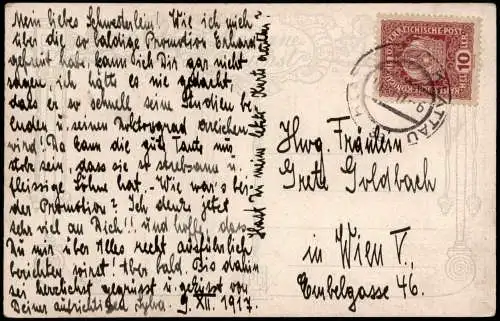 Mein liebes Schwesterlein! Wie ich mich
über die so baldige Promotion Erhard
gefreut hab, kann ich Dir gar nicht
sagen, ich hätte es nie gedacht,
daß er so schnell seine Studien be-
enden u. seinen Doktorgrad erreichen
wird! Da kann die gute Tante nur
stolz sein, dass sie so strebsame u.
fleissige Söhne hat. - Wie war's bei
der Promotion? Ich denke jetzt
sehr viel an Dich!! und hoffe, dass
Du mir über Alles recht ausführlich
berichten wirst! Aber bald. Bis dahin
sei herzlichst gegrüsst u. geküsst von
Deiner aufrichtigen 9. XII. 1917.
Hwg. Fräulein
Grete Goldbach
in Wien V.,
Embelgasse 46.
KAIS. KÖN. ÖSTERREICHISCHE POST
10 HELLER 10
KATTAU